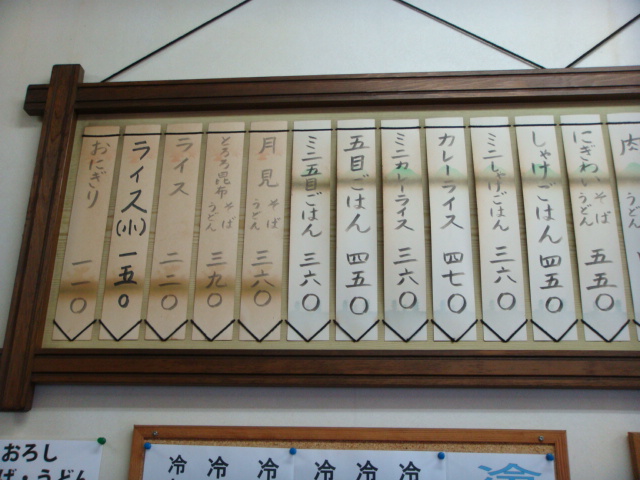 肉
にぎわいそばうどん 五五〇
しゃけごはん 四五〇
ミニしゃけごはん 三六〇
カレーライス 四七〇
ミニカレーライス 三六〇
五目ごはん 四五〇
ミニ五目ごはん 三六〇
月見そばうどん 三六〇
とろろ昆布そばうどん 三九〇
ライス 二二〇
ライス(小) 一五〇
おにぎり 一一〇
おろし
ば・うどん
冷
冷
冷
冷
冷
冷
冷